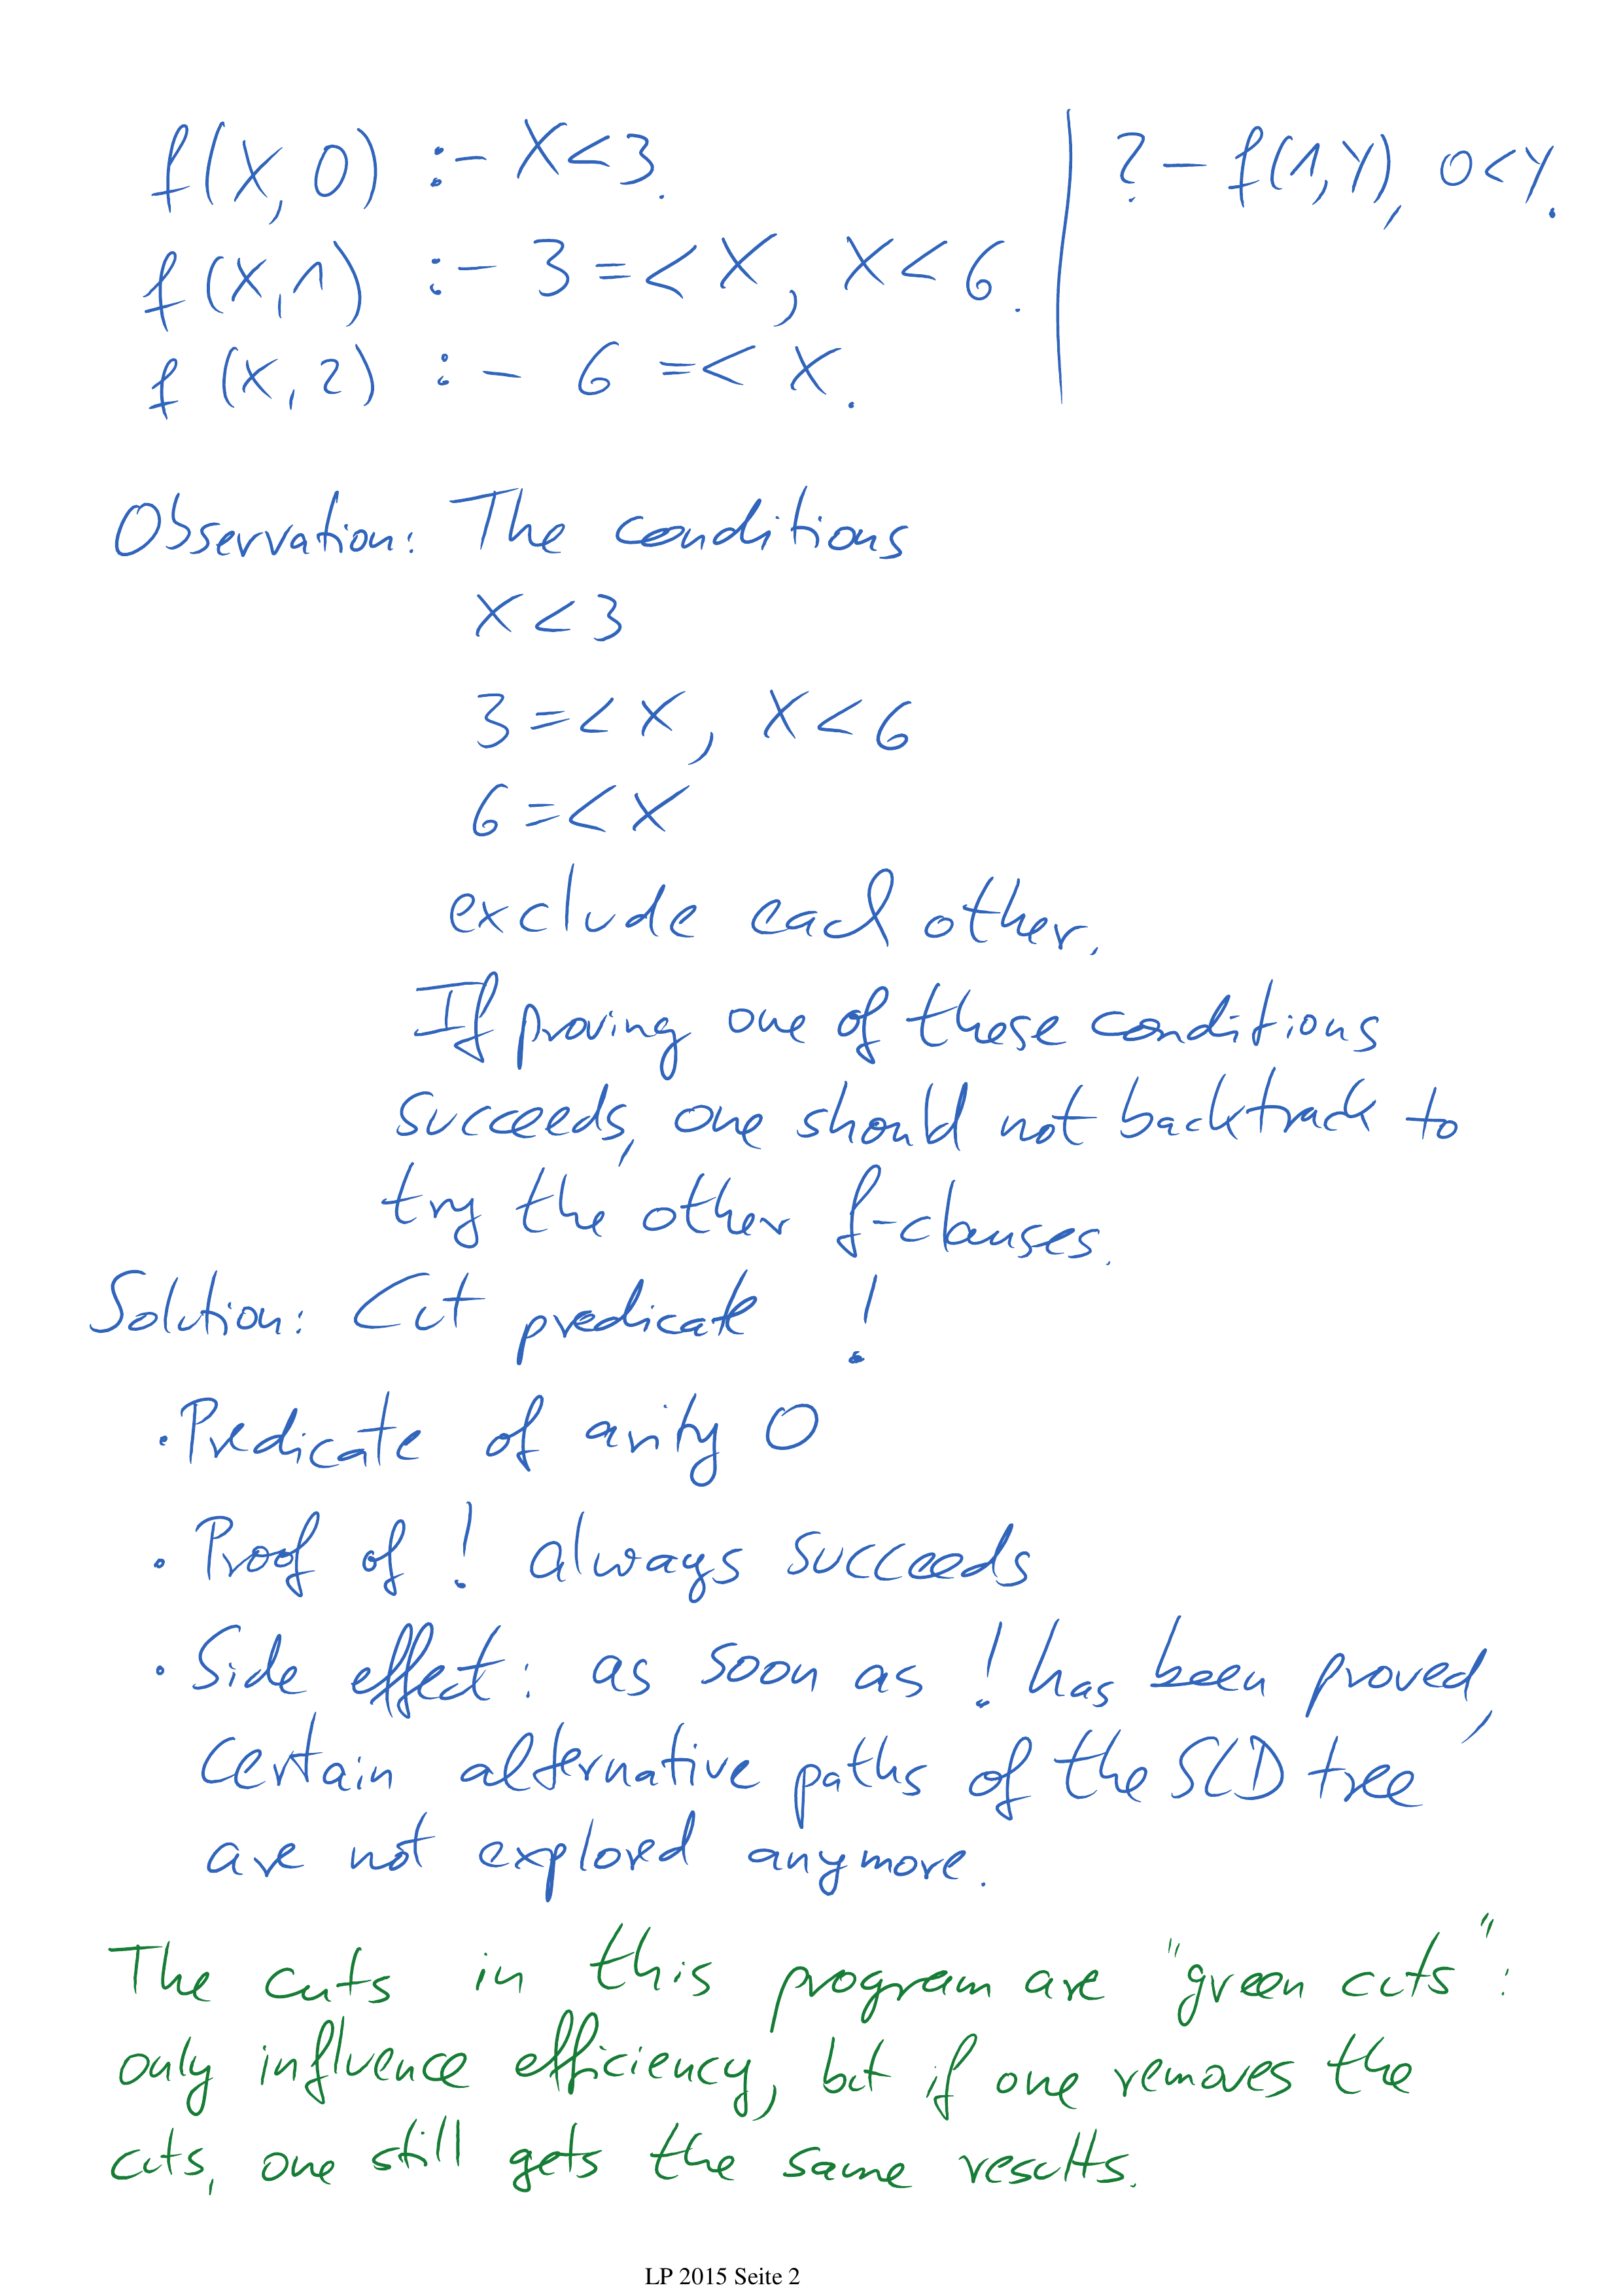 f(X,0) :- X<3.
?- f(1,Y), 0<Y.
f(X,1) :- 3=<X, X<6.
f(X,2) :- 6=<X.
Observation: The conditions
X<3
3=<X, X<6
6=<X
exclude each other.
If proving one of these conditions
succeeds, one should not backtrack to
try the other f-clauses.
Solution: Cut predicate !
• Predicate of arity 0
• Proof of ! always succeeds
• Side effect: as soon as ! has been proved,
certain alternative paths of the SLD tree
are not explored anymore.
The cuts in this program are "green cuts":
only influence efficiency, but if one removes the
cuts, one still gets the same results.
LP 2015 Seite 2